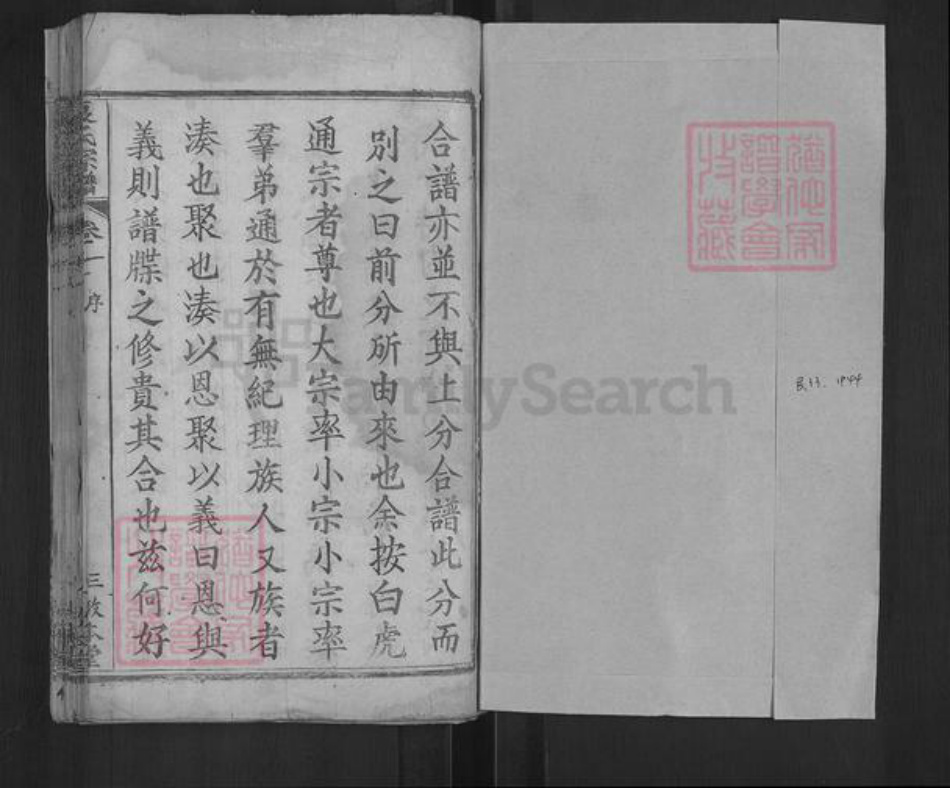 合譜亦並不與上分合譜此分而
別之曰前分所由來也余按白虎
通宗者尊也大宗率小宗小宗率
羣弟通於有無紀理族人又族者
湊也聚也湊以恩聚以義曰恩與
義則譜牒之修貴其合也兹何好
氏宗譜
卷一
序
三
堂
FamilySearch
譜學會
藏